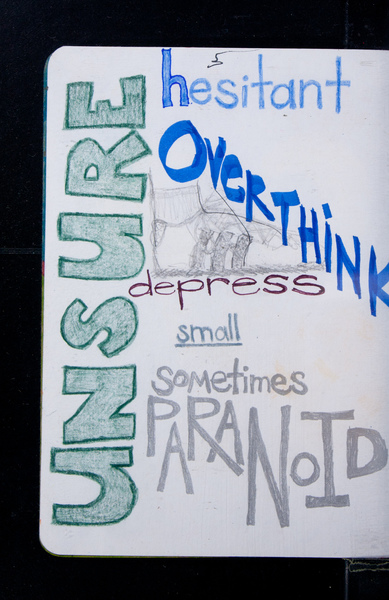 UNSURE
hesitant
OVERTHINK
depress
small
sometimes
PARANOID